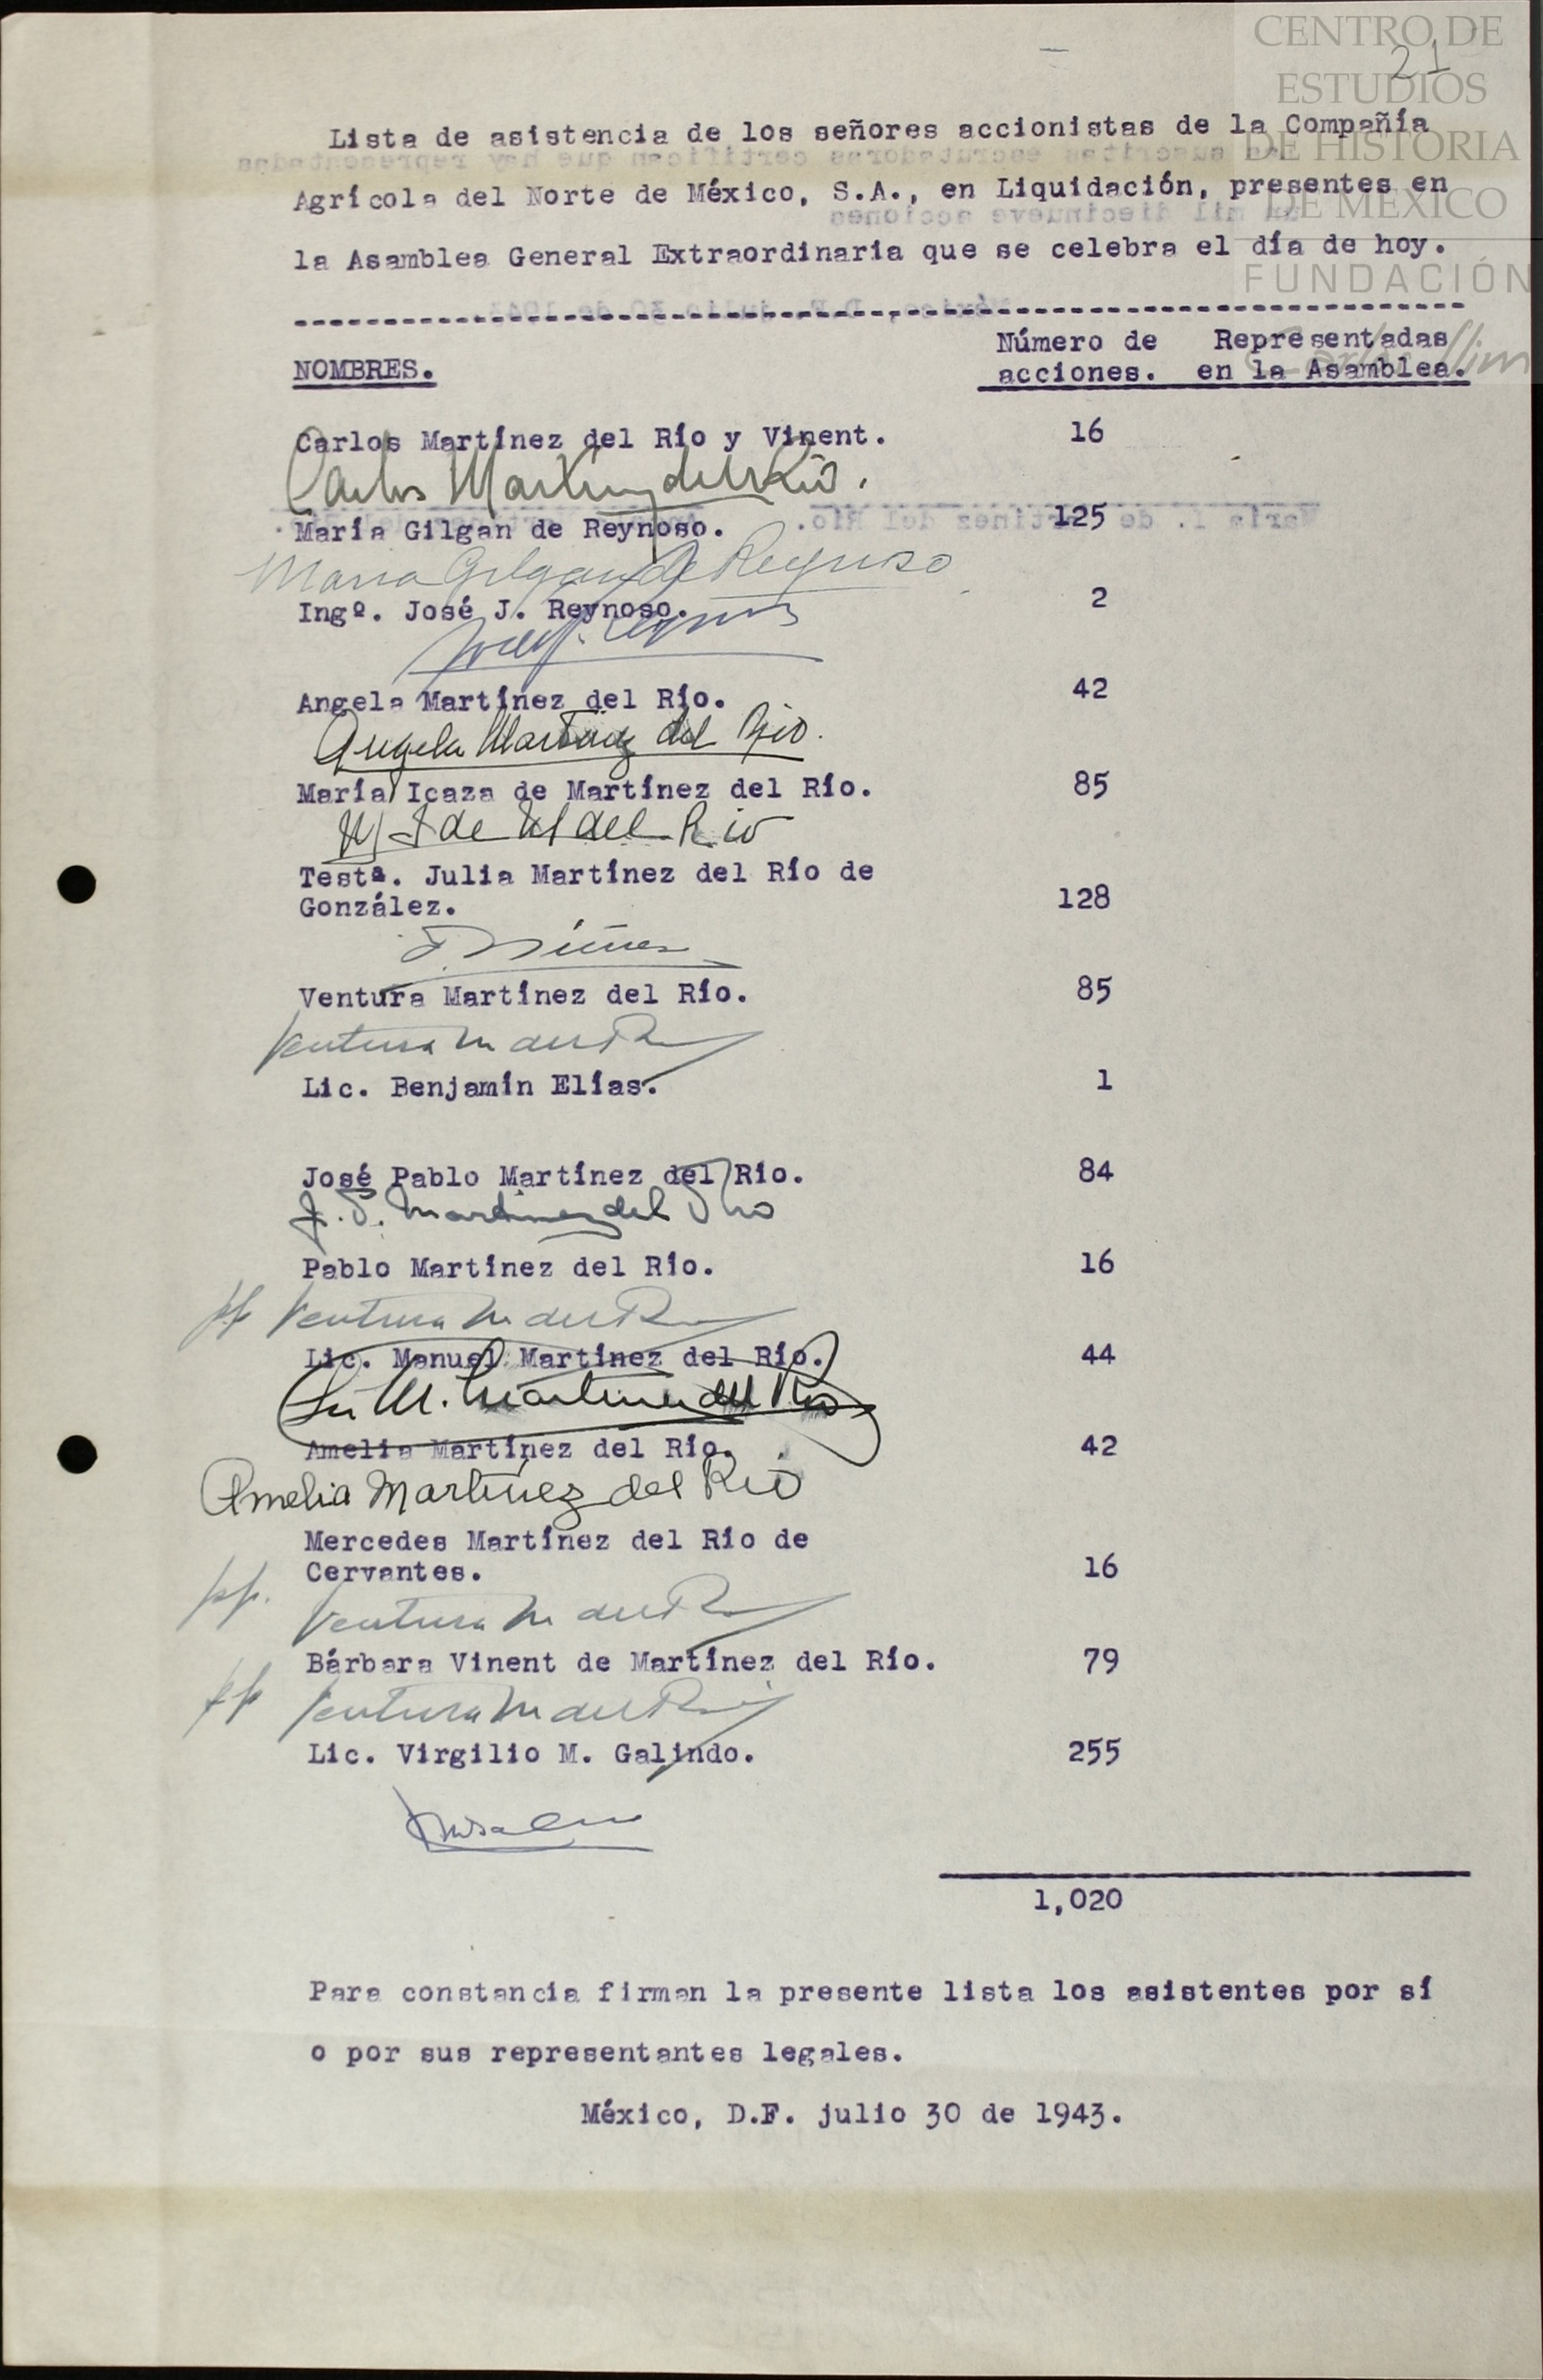 CENTRO DE
ESTUDIOS
DE HISTORIA
DE MÉXICO
FUNDACIÓN
Carlos Slim
21
Lista de asistencia de los señores accionistas de la Compañía
Agrícola del Norte de México, S.A., en Liquidación, presentes en
la Asamblea General Extraordinaria que se celebra el día de hoy.
Número de Representadas
NOMBRES. acciones. en la Asamblea.
Carlos Martínez del Río y Vinent. 16
Carlos Martínez del Río.
María Gilgan de Reynoso. 125
Maria Gilgan de Reynoso
Ingº. José J. Reynoso. 2
José J. Reynoso
Angela Martínez del Río. 42
Angela Martínez del Rio.
María Icaza de Martínez del Río. 85
M I de M del Rio
Testª. Julia Martínez del Río de
González. 128
Ventura Martínez del Río. 85
Ventura M del Rio
Lic. Benjamín Elías. 1
José Pablo Martínez del Río. 84
J. P. Martinez del Rio
Pablo Martínez del Río. 16
pp Ventura M del Rio
Lic. Manuel Martínez del Río. 44
Lic M. Martinez del Rio
Amelia Martínez del Río. 42
Amelia Martínez del Rio
Mercedes Martínez del Río de
Cervantes. 16
pp. Ventura M del Rio
Bárbara Vinent de Martínez del Río. 79
pp Ventura M del Rio
Lic. Virgilio M. Galindo. 255
1,020
Para constancia firman la presente lista los asistentes por sí
o por sus representantes legales.
México, D.F. julio 30 de 1943.